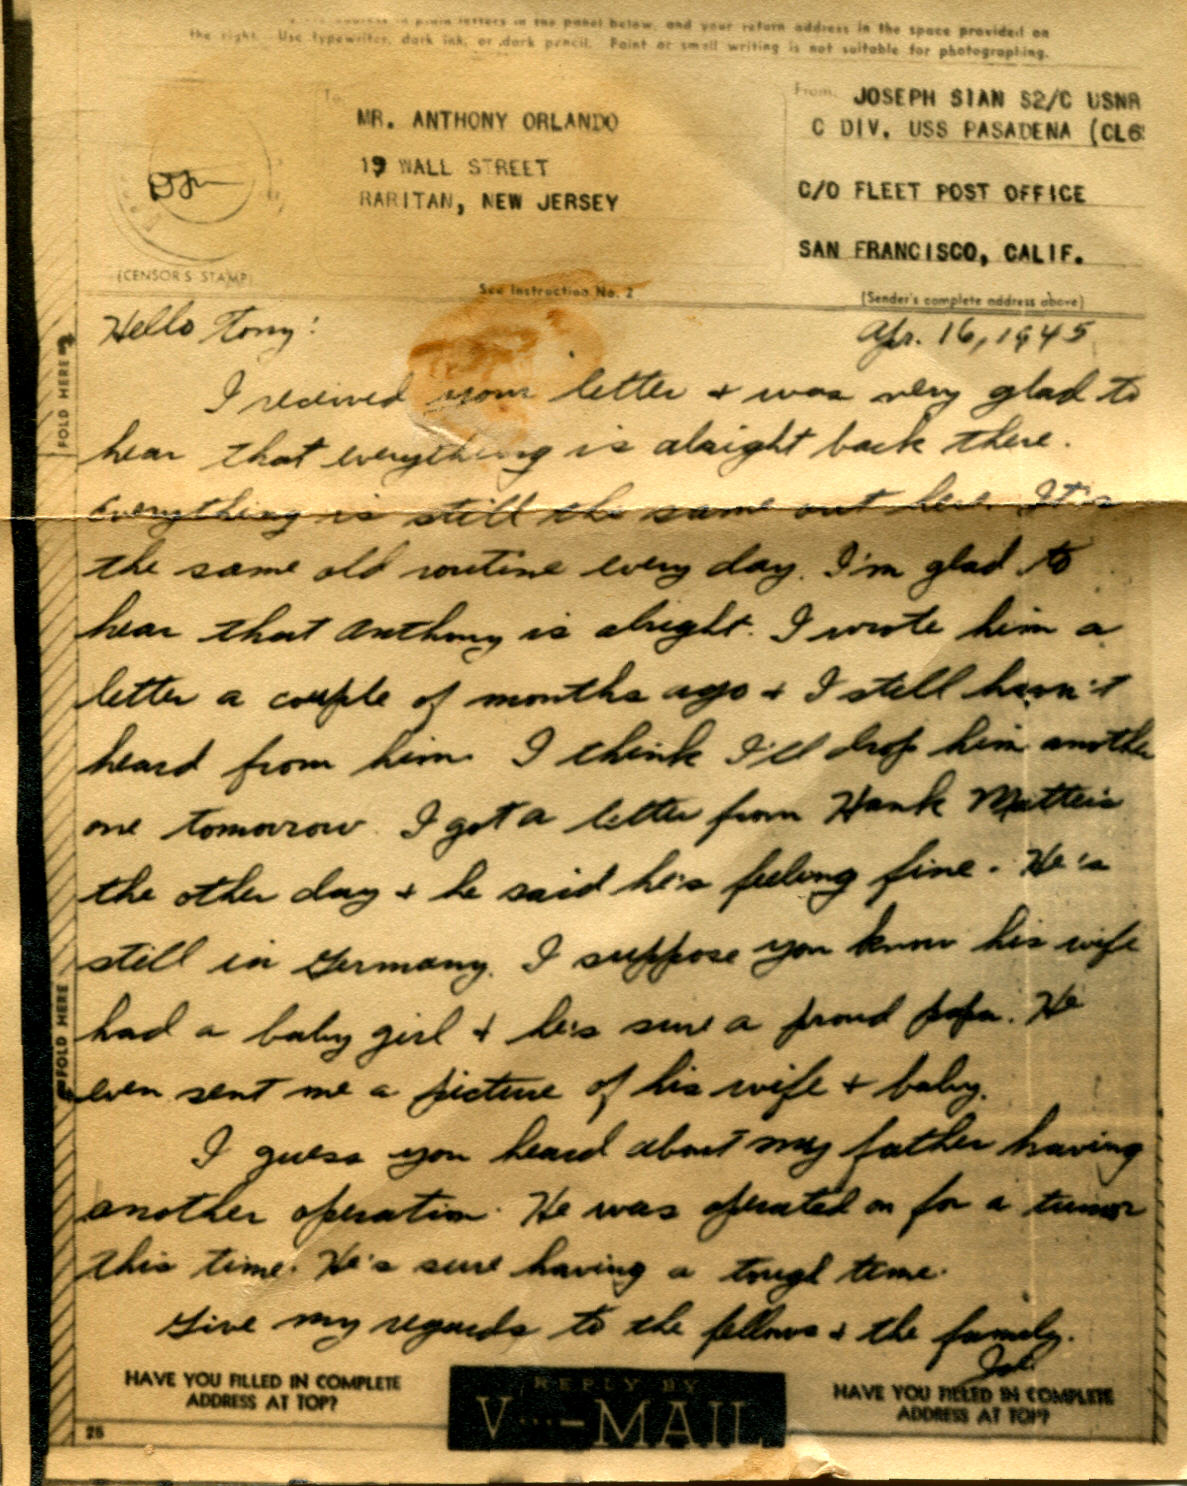 address in plain letters in the panel below, and your return address in the space provided on
the right. Use typewriter, dark ink, or dark pencil. Faint or small writing is not suitable for photographing.
To:
MR. ANTHONY ORLANDO
19 WALL STREET
RARITAN, NEW JERSEY
From
JOSEPH SIAN S2/C USNR
C DIV. USS PASADENA (CL6
C/O FLEET POST OFFICE
SAN FRANCISCO, CALIF.
(CENSOR'S STAMP)
See Instruction No. 2
(Sender's complete address above)
Hello Tony:
Apr. 16, 1945
I received your letter + was very glad to
hear that everything is alright back there.
Everything is still the same out here. It's
the same old routine every day. I'm glad to
hear that Anthony is alright. I wrote him a
letter a couple of months ago + I still havn't
heard from him. I think I'll drop him another
one tomorrow. I got a letter from Hank Matteis
the other day + he said he's feeling fine. He's
still in Germany. I suppose you know his wife
had a baby girl + he's sure a proud papa. He
even sent me a picture of his wife + baby.
I guess you heard about my father having
another operation. He was operated on for a tumor
this time. He's sure having a tough time.
Give my regards to the fellows + the family.
Joe
FOLD HERE
FOLD HERE
HAVE YOU FILLED IN COMPLETE
ADDRESS AT TOP?
REPLY BY
V···—MAIL
HAVE YOU FILLED IN COMPLETE
ADDRESS AT TOP?